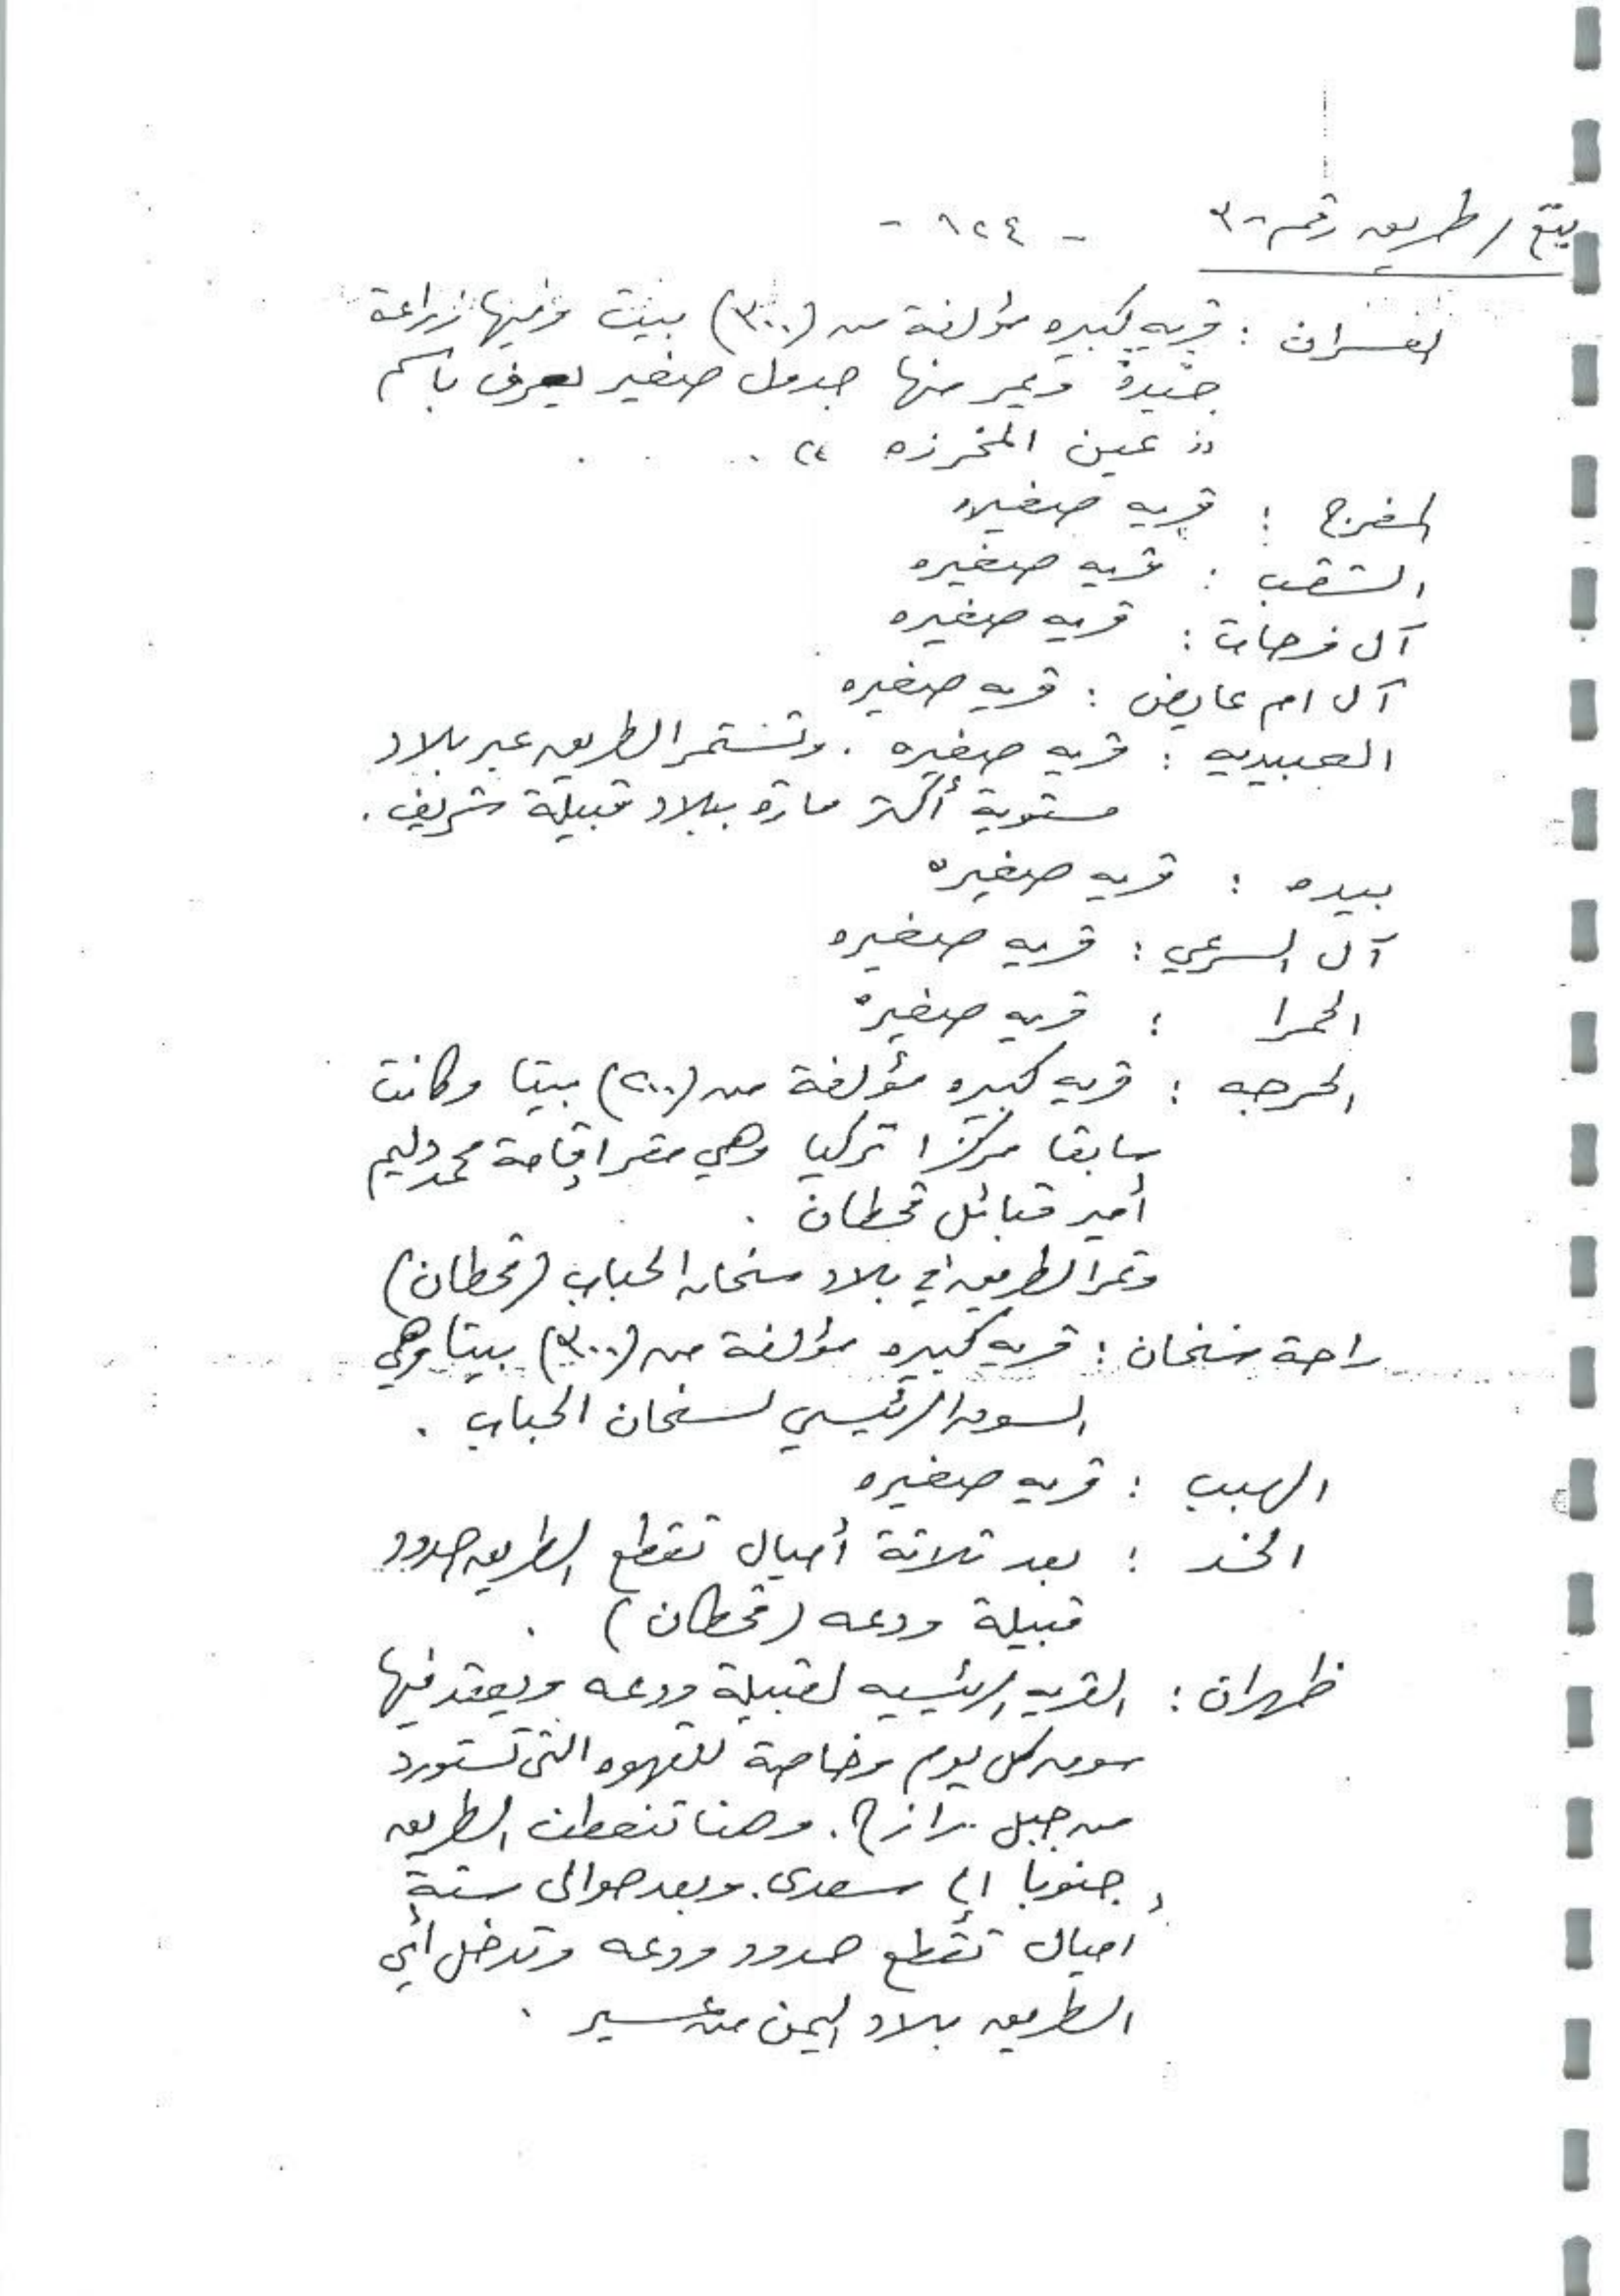 يتبع / طريق رقم -٣      - ١٢٤ -
العسران : قريه كبيره مؤلفة من (٣٠٠) بيت وفيها زراعة
جيدة ويمر منها جدول صغير يعرف باسم
" عين المخرزه " .
المفرح : قريه صغيره
الشقب : قريه صغيره
آل فرحان : قريه صغيره
آل ام عايض : قريه صغيره
العبيديه : قريه صغيره . وتستمر الطريق عبر بلاد
مستوية أكثر مارة ببلاد قبيلة شريف .
بيده : قريه صغيره
آل السرعي : قريه صغيره
الحمرا : قريه صغيره
الحرجه : قريه كبيره مؤلفة من (٢٠٠) بيتا وكانت
سابقا مركزا تركيا وهي مقر إقامة محمد دليم
أمير قبائل قحطان .
وتمر الطريق في بلاد سنحان الحباب (قحطان)
راحة سنحان : قريه كبيره مؤلفة من (٣٠٠) بيتا وهي
السوق الرئيسي لسنحان الحباب .
الهبب : قريه صغيره
: بعد ثلاثة أميال تقطع الطريق حدود
قبيلة ودعه (قحطان) .
ظهران : القريه الرئيسيه لقبيلة ودعه ويعقد فيها
سوق كل يوم وخاصة للقهوه التى تستورد
من جبل رازح . وهنا تنعطف الطريق
جنوبا الى سعدى . وبعد حوالى ستة
أميال تقطع حدود ودعه وتدخل أي
الطريق بلاد اليمن من عسير .